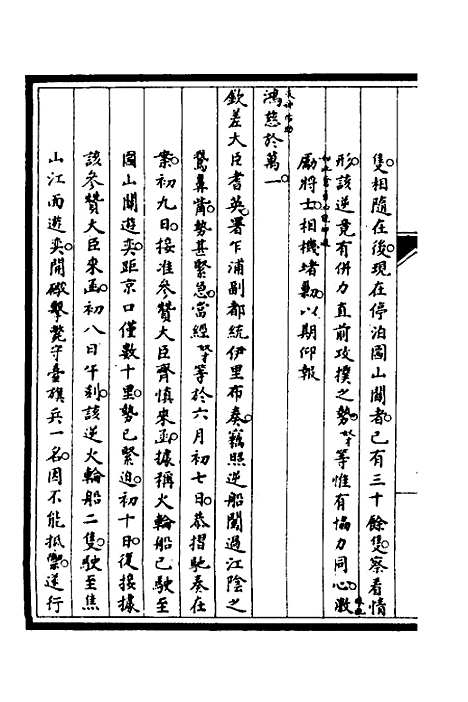 隻相隨在後現在停泊圌山關者已有三十餘隻察看情
形該逆竟有併力直前攻撲之勢奴才等惟有協力同心激
勵將士相機堵勦以期仰報
鴻慈於萬一
欽差大臣耆英署乍浦副都統伊里布奏竊照逆船闖過江陰之
鵞鼻嘴勢甚緊急當經奴才等於六月初七日恭摺馳奏在
案初九日接准參贊大臣齊慎來函據稱火輪船已駛至
圌山關遊奕距京口僅數十里勢已緊迫初十日復接據
該參贊大臣來函初八日午刻該逆火輪船二隻駛至焦
山江面遊奕開礮擊斃守臺旗兵一名因不能抵禦逆行